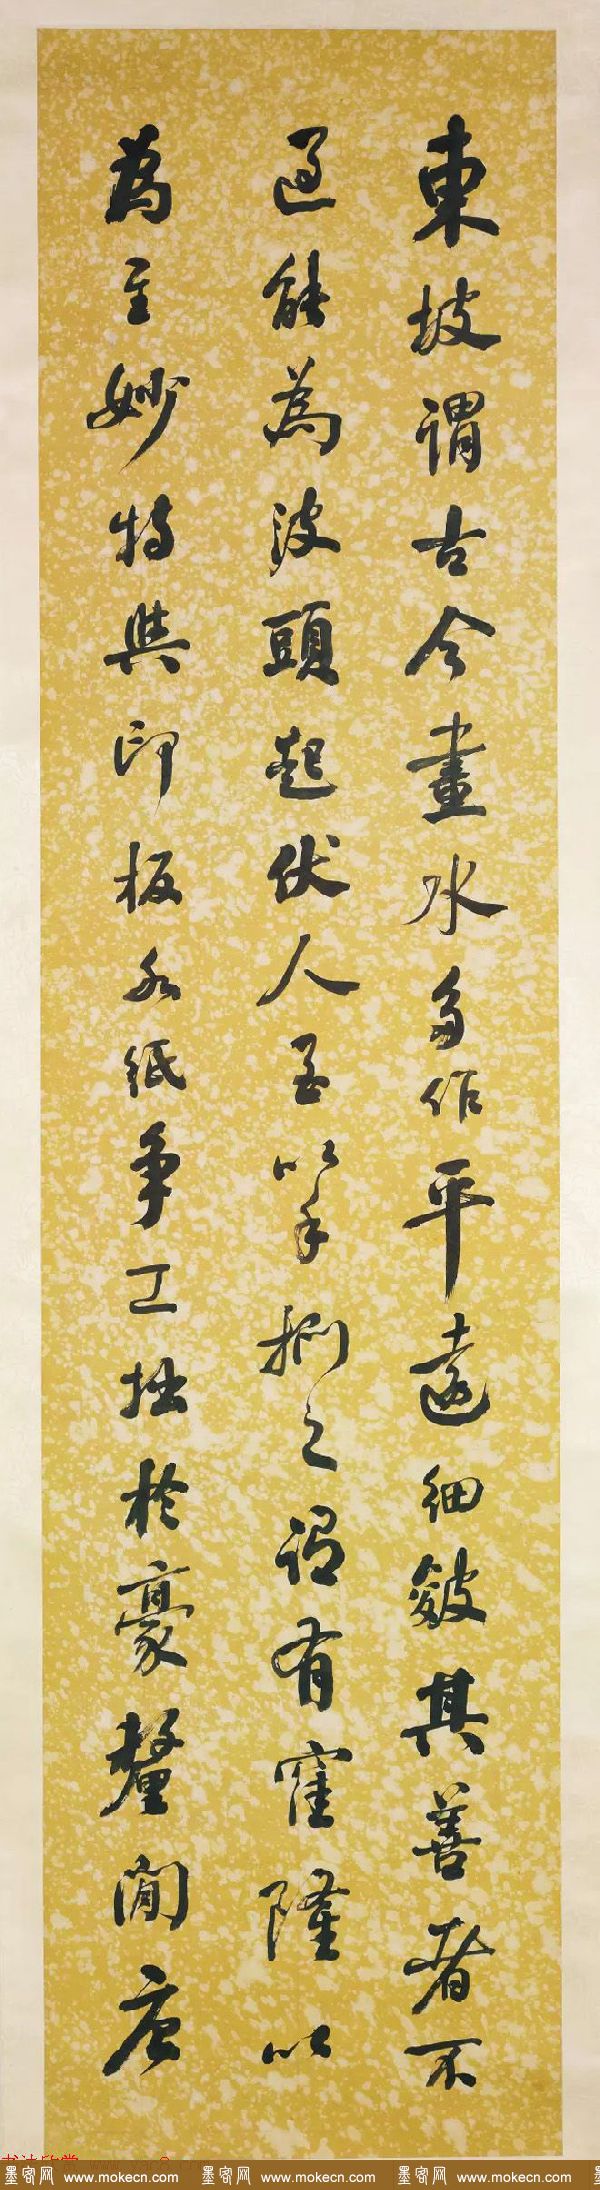 東坡謂古今畫水多作平遠細皴其善者不
過能為波頭起伏人至以手捫之謂有窪隆以
為至妙特與印板水紙爭工拙於豪釐閒唐
墨客网 www.mokecn.com 墨客网 www.mokecn.com 墨客网 www.mokecn.com